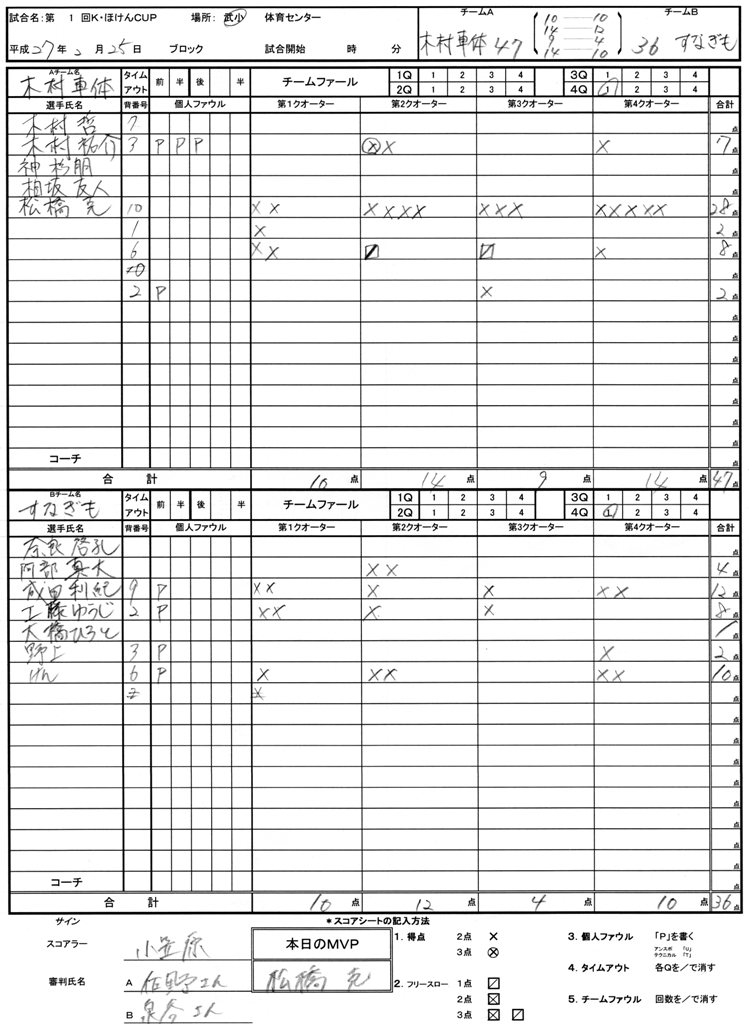 試合名：第 1 回K・ほけんCUP 場所： 武小 体育センター
チームA チームB
木村車体 47 36 すなぎも
10 10
14 12
9 4
14 10
平成27年 2月25日 ブロック 試合開始 時 分
Aチーム名 木村車体 タイムアウト 前 半 後 半 チームファール 1Q 1 2 3 4 3Q 1 2 3 4
2Q 1 2 3 4 4Q 1 2 3 4
選手氏名 背番号 個人ファウル 第1クオーター 第2クオーター 第3クオーター 第4クオーター 合計
木村 哲 7 点
木村 祐介 3 P P P ⊗ × × 7点
神杉朋 点
相坂 友人 点
松橋 克 10 × × × × × × × × × × × × × × 28点
1 × 2点
6 × × ☑ ☑ × 8点
点
2 P × 2点
コーチ 点
合 計 10 点 14 点 9 点 14 点 47点
Bチーム名 すなぎも タイムアウト 前 半 後 半 チームファール 1Q 1 2 3 4 3Q 1 2 3 4
2Q 1 2 3 4 4Q 1 2 3 4
選手氏名 背番号 個人ファウル 第1クオーター 第2クオーター 第3クオーター 第4クオーター 合計
奈良 啓孔 点
阿部 真大 × × 4点
成田 利紀 9 P × × × × × × 12点
工藤ゆうじ 2 P × × × × 8点
大橋ひろと 点
野上 3 P × 2点
げん 6 P × × × × × 10点
コーチ 点
合 計 10 点 12 点 4 点 10 点 36点
サイン
＊スコアシートの記入方法
スコアラー 小笠原
本日のMVP
松橋 克
審判氏名 A 佐野さん
B 泉谷さん
1. 得点 2点 ×
3点 ⊗
2. フリースロー 1点 ☑
2点 ☒
3点 ☒ ☑
3. 個人ファウル 「P」を書く
アンスポ 「U」
テクニカル 「T」
4. タイムアウト 各Qを／で消す
5. チームファウル 回数を／で消す